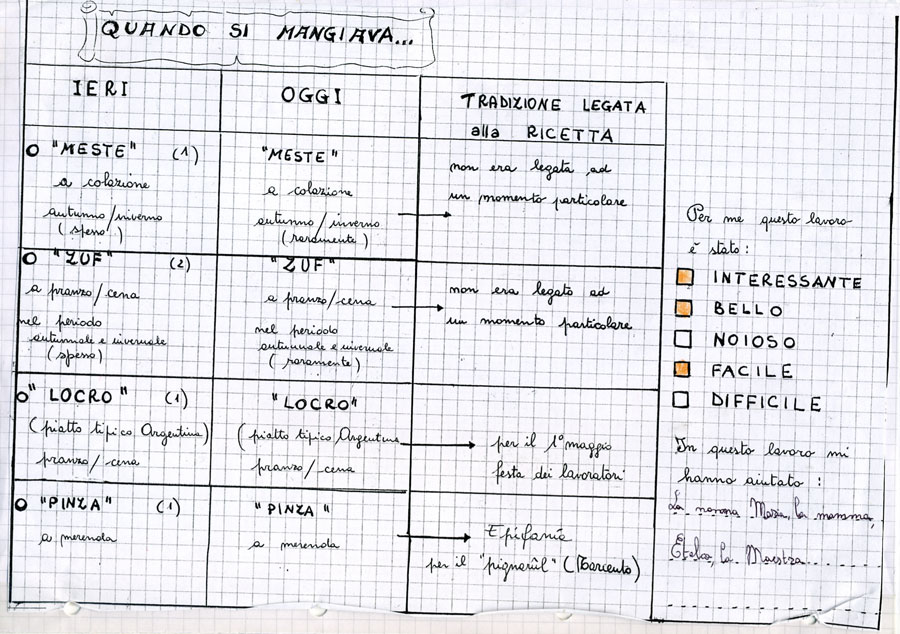 QUANDO SI MANGIAVA...
IERI
"MESTE" (1)
a colazione
autunno/inverno
(spesso)
"ZUF" (2)
a pranzo/cena
nel periodo
autunnale e invernale
(spesso)
"LOCRO" (1)
(piatto tipico Argentina)
pranzo/cena
"PINZA" (1)
a merenda
OGGI
"MESTE"
a colazione
autunno/inverno
(raramente)
"ZUF"
a pranzo/cena
nel periodo
autunnale e invernale
(raramente)
"LOCRO"
(piatto tipico Argentina
pranzo/cena
"PINZA"
a merenda
TRADIZIONE LEGATA
alla RICETTA
non era legata ad
un momento particolare
non era legato ad
un momento particolare
per il 1° maggio
festa dei lavoratori
Epifania
per il "pignarûl" (Tarcento)
Per me questo lavoro
è stato:
INTERESSANTE
BELLO
NOIOSO
FACILE
DIFFICILE
In questo lavoro mi
hanno aiutato:
La nonna Maria, la mamma,
la Maestra